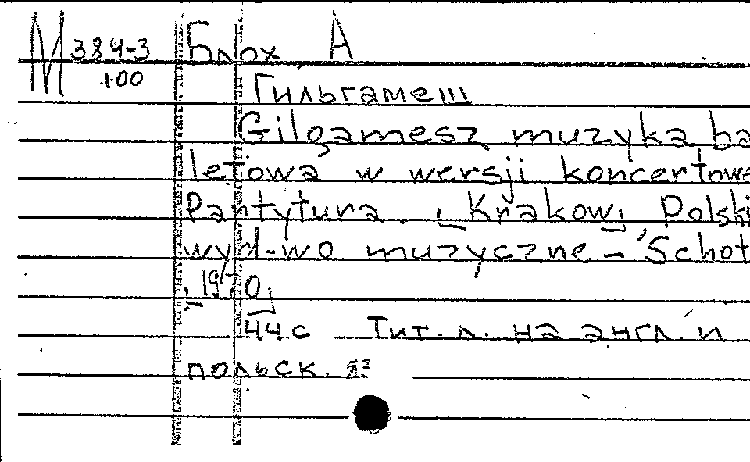 М 384-3 Блох А
100
Гильгамеш
Gilgamesz muzyka ba
letowa w wersji koncertowe
Partytura. [Krakow] Polski
wyd-wo muzyczne – Schot
[1970]
44с Тит. л. на англ. и
польск. яз